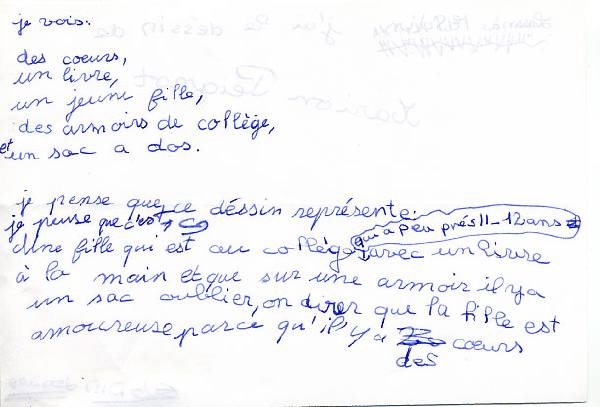 je vois:
des coeurs,
un livre,
un jeune fille,
des armoirs de collège,
et un sac a dos.
je pense que ce déssin représente:
je pense que c'est
d'une fille qui est au collège, qui a peu prés 11-12 ans avec un livre
à la main et que sur une armoir il y a
un sac oublier, on direr que la fille est
amoureuse parce qu'il y a des coeurs